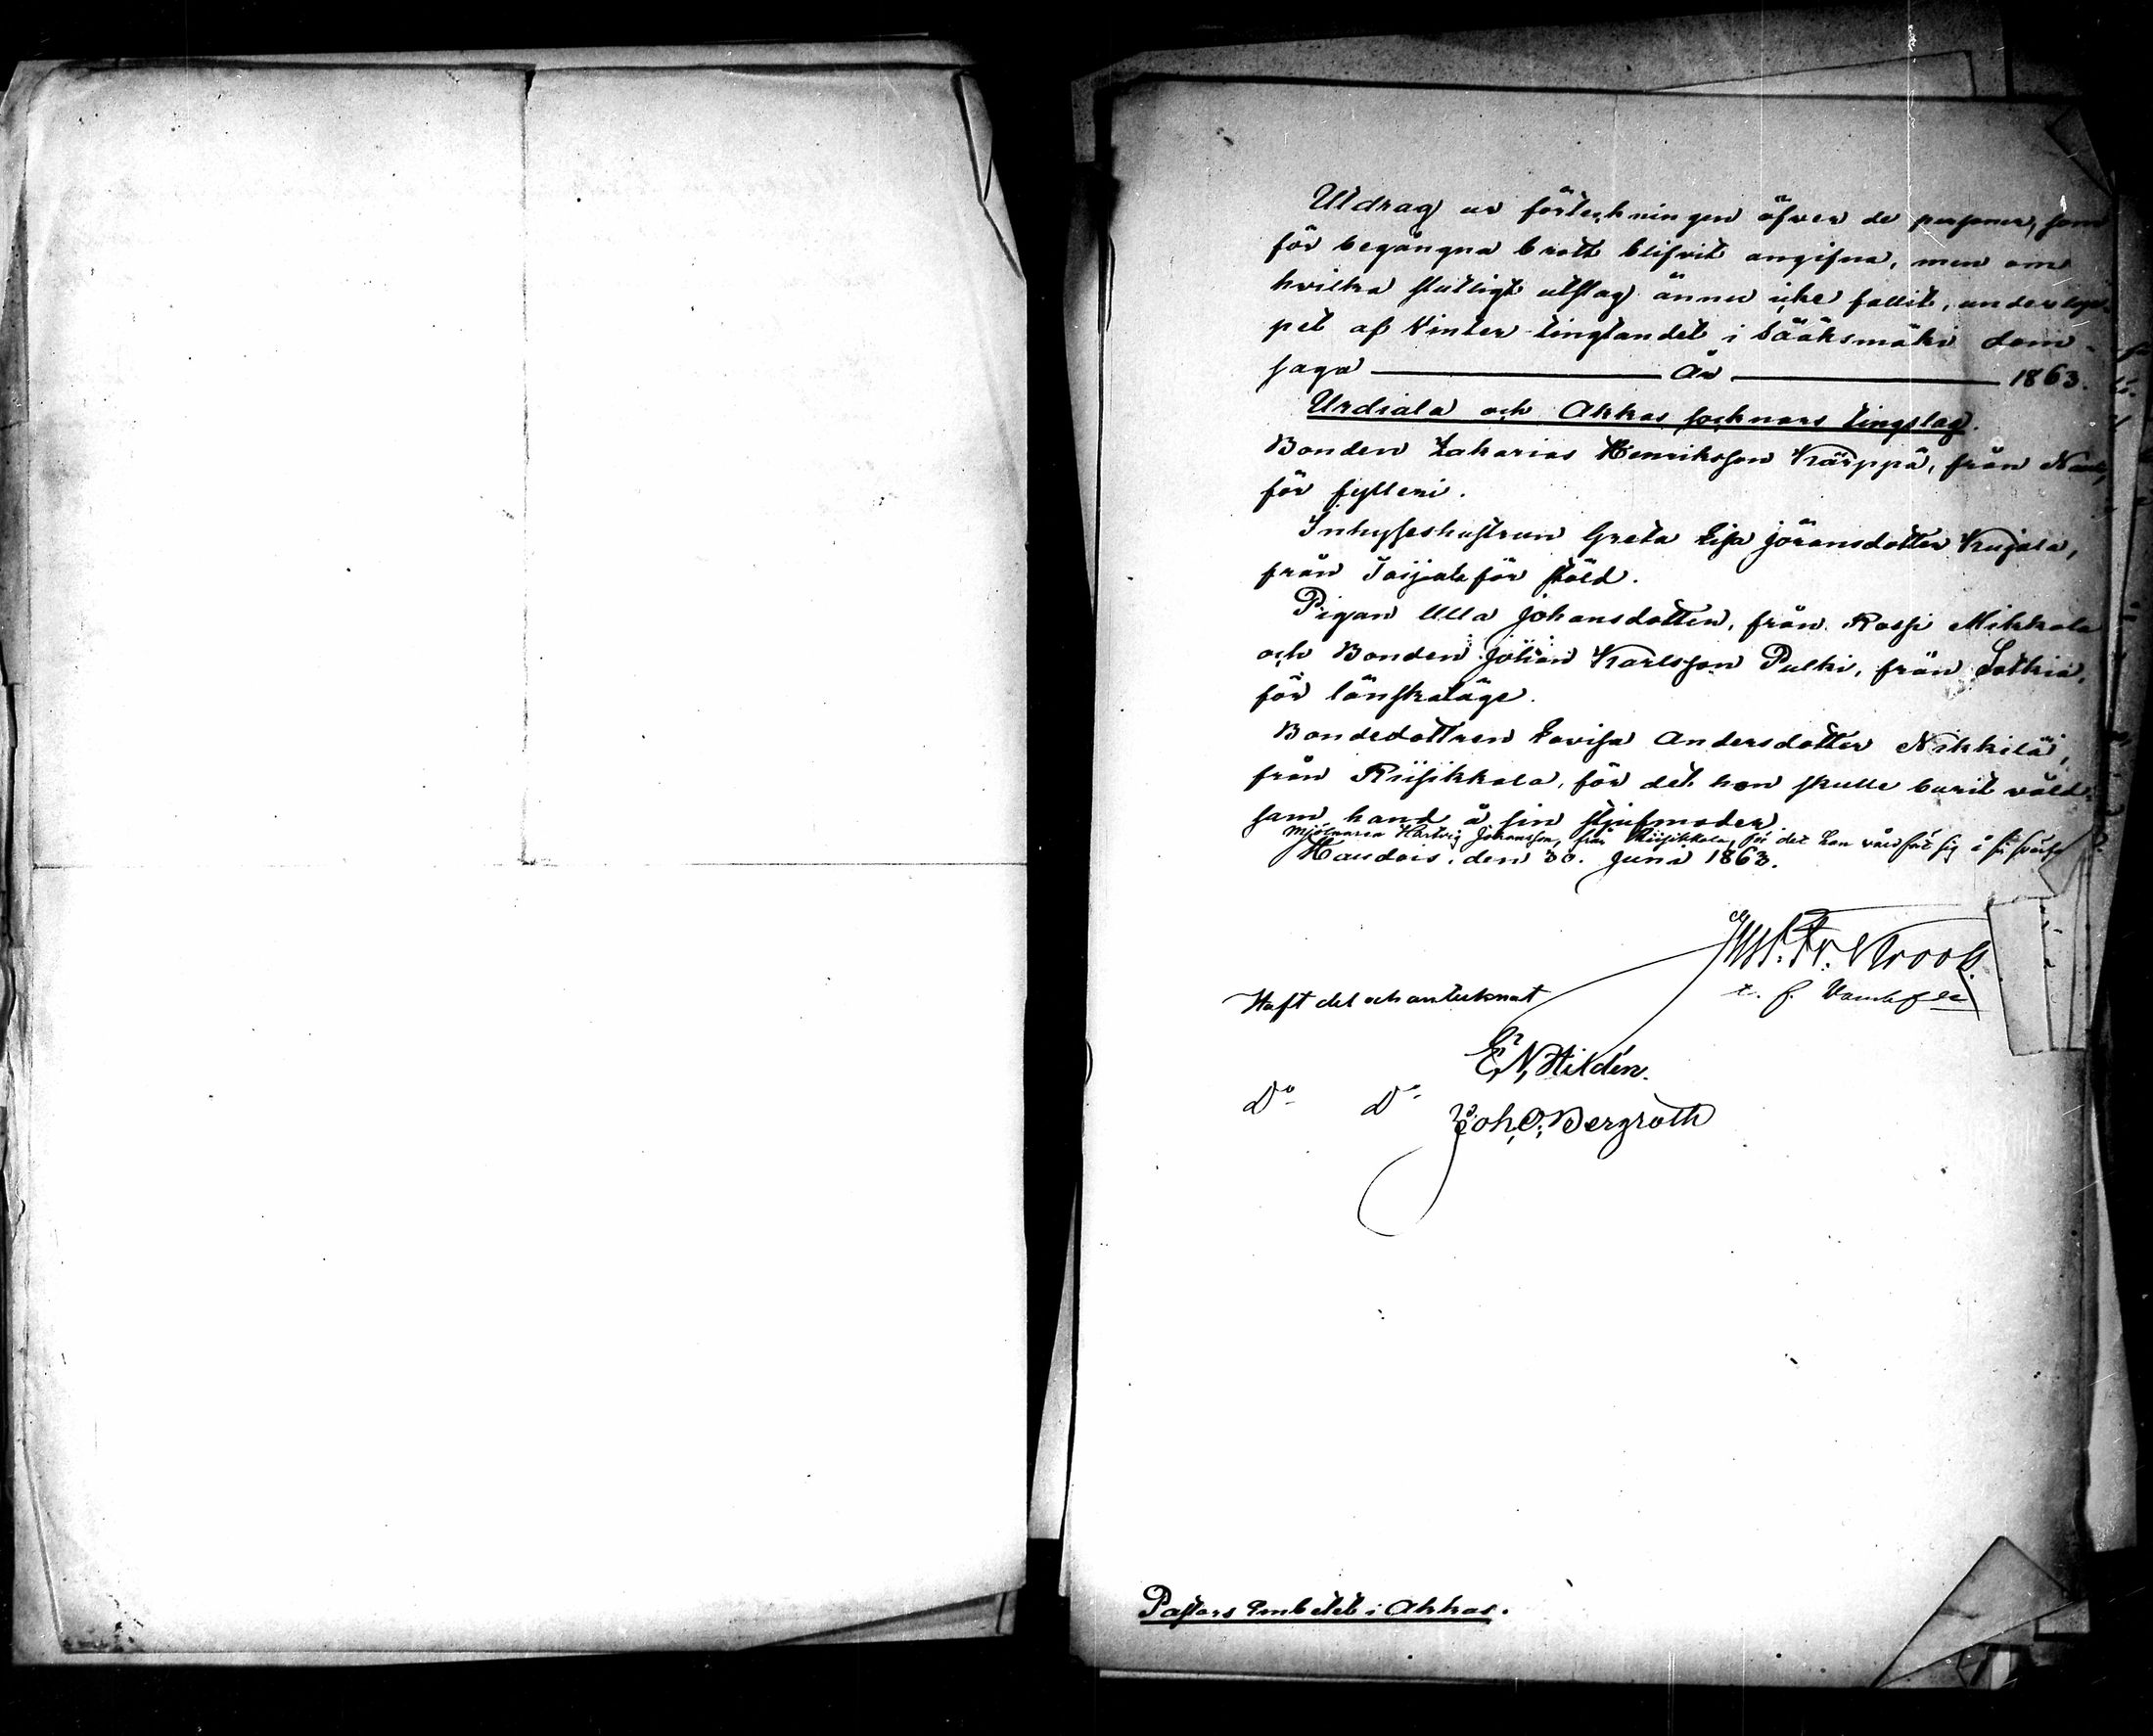 Utdrag ur förteckningen öfver de personer, som
för begångna brott blifvit angifna, men om
hvilka slutligt utslag ännu icke fallit, under lop-
pet af Vinter tingtandet i Sääksmäki dom-
saga År 1863.
Urdiala och Akkas socknars tingslag.
Bonden Zakarias Henriksson Kärppä, från
för fylleri.
Inhyseshustrun Greta Lisa Jöransdotter Kujala,
från Toijala för stöld.
Pigan Ulla Johansdotter, från Rossi Mikkola
och Bonden Johan Karlsson Pulki, från Sotkia,
för lönskaläge.
Bondedottren Lovisa Andersdotter Nikkilä,
från Riisikkala, för det hon skulle burit våld-
sam hand å sin stjufmoder.
Mjölnaren Hartvig Johansson, från Riisikkala, för det han våldfört sig å sin
Haudois, den 30. Juni 1863.
Gust. Fr. Krook.
t. f. Domhafde
Haft del och antecknat
E. N. Hildén.
Do Do Joh. O. Bergroth
Pastors Embetet i Akkas.